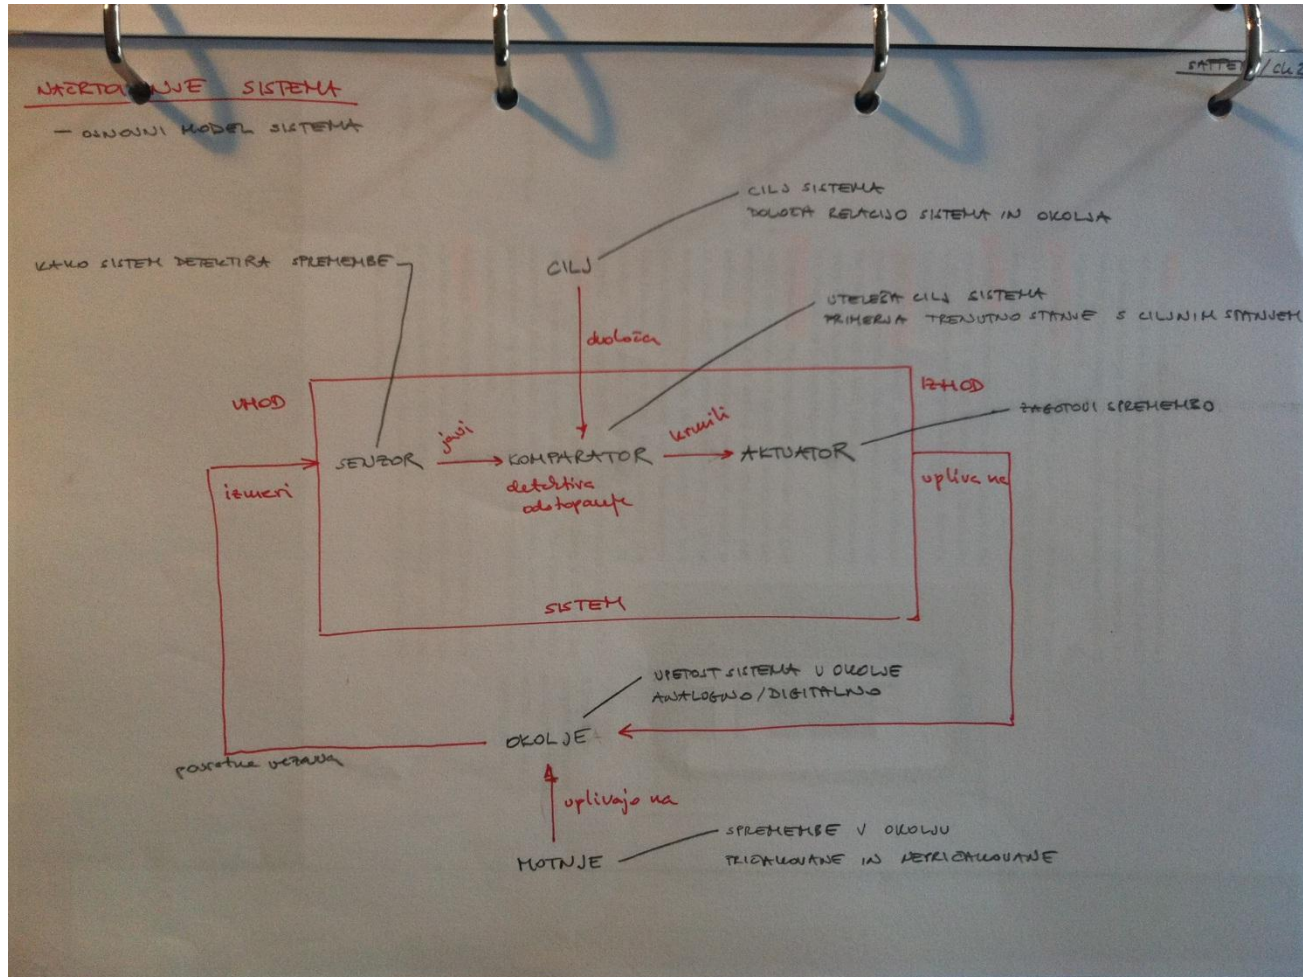 NAČRTOVANJE SISTEMA
/ Ch 2
- OSNOVNI MODEL SISTEMA
CILJ SISTEMA
DOLOČA RELACIJO SISTEMA IN OKOLJA
KAKO SISTEM DETEKTIRA SPREMEMBE
CILJ
UTELEŠA CILJ SISTEMA
PRIMERJA TRENUTNO STANJE S CILJNIM STANJEM
določa
VHOD
IZHOD
ZAGOTOVI SPREMEMBO
SENZOR
javi
KOMPARATOR
krmili
AKTUATOR
izmeri
detektira
odstopanje
vpliva na
SISTEM
VPETOST SISTEMA V OKOLJE
ANALOGNO/DIGITALNO
OKOLJE
povratna vezava
vplivajo na
SPREMEMBE V OKOLJU
MOTNJE
PRIČAKOVANE IN NEPRIČAKOVANE